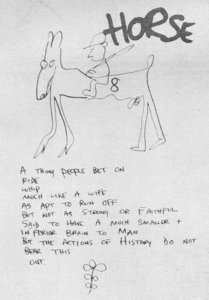 HORSE
8
A THING PEOPLE BET ON
RIDE
WHIP
MUCH LIKE A WIFE
AS APT TO RUN OFF
BUT NOT AS STRONG OR FAITHFUL
SAID TO HAVE A MUCH SMALLER +
INFERIOR BRAIN TO MAN
BUT THE ACTIONS OF HISTORY DO NOT
BEAR THIS
OUT.